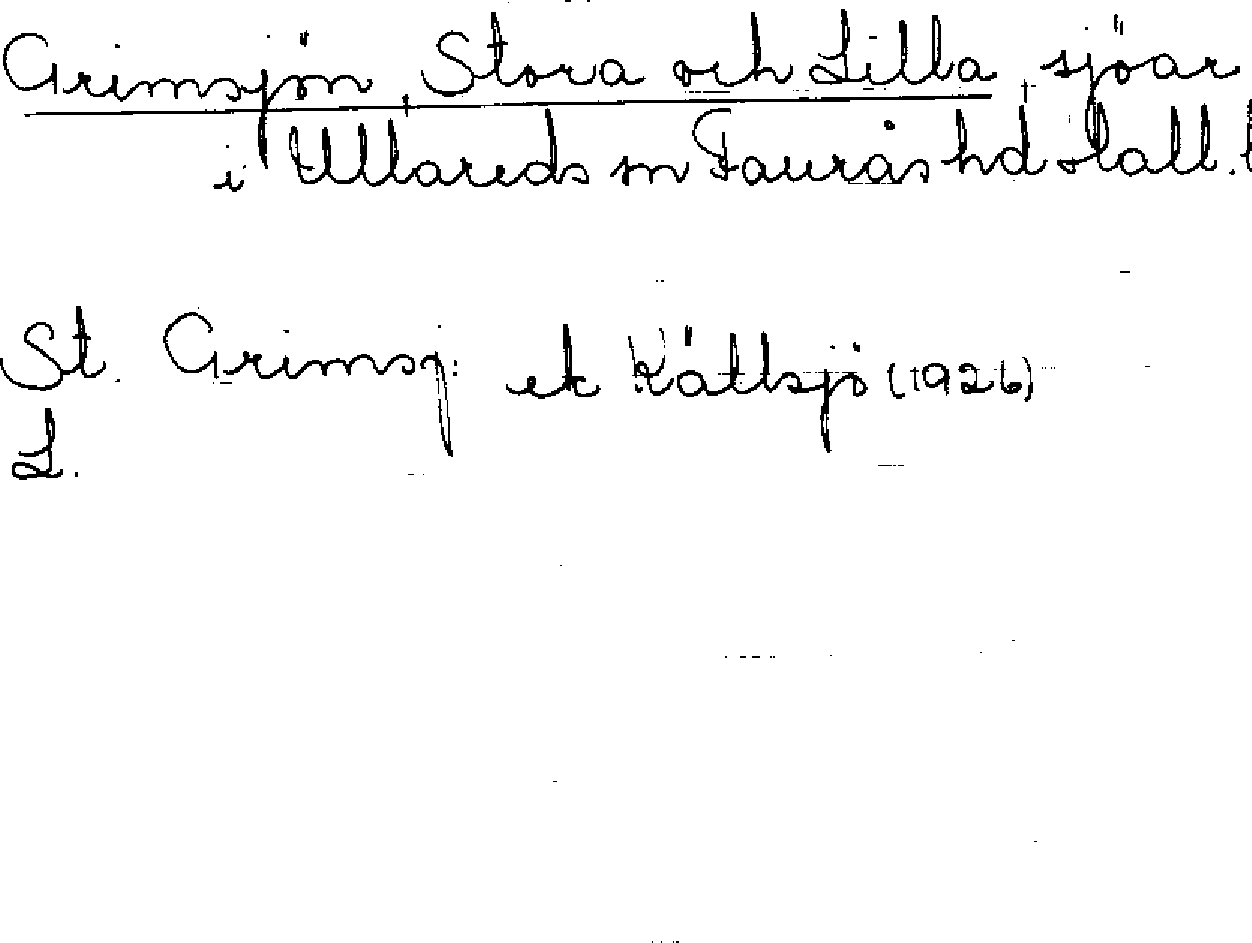 Grimsjön, Stora och Lilla, sjöar
i Ullareds sn Faurås hd Hall. l
St. Grimsj: ek Källsjö (1926)
L.